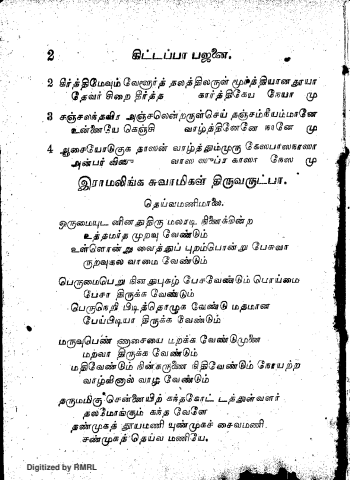 2 கிட்டப்பா பஜனை.
2 கீர்த்திமேவும் வேளூர்த் தலத்திலருள் மூர்த்தியான தூயா
தேவர் சிறை தீர்த்த கார்த்திகேய நேயா மு
3 சஞ்சலந்தவிர அஞ்சலென்றருள்செய் தஞ்சம்நீயம்மானே
உன்னையே கெஞ்சி வாழ்த்தினேனே நானே மு
4 ஆசையோடுகுக தாஸன் வாழ்த்தும்முரு கேஸபாஸநாஸா
அன்பர் வாஸ ஸுப்ர காஸா கேஸ மு
இராமலிங்க சுவாமிகள் திருவருட்பா.
தெய்வமணிமாலை.
ஒருமையுட னினதுதிரு மலரடி நினைக்கின்ற
உத்தமர்த முறவு வேண்டும்
உள்ளொன்று வைத்துப் புறம்பொன்று பேசுவா
ருறவுகல வாமை வேண்டும்
பெருமைபெறு நினதுபுகழ் பேசவேண்டும் பொய்மை
பேசா திருக்க வேண்டும்
பெருநெறி பிடித்தொழுக வேண்டு மதமான
பேய்பிடியா திருக்க வேண்டும்
மருவுபெண் ணாசையை மறக்க வேண்டுமுனை
மறவா திருக்க வேண்டும்
மதிவேண்டும் நின்கருணை நிதிவேண்டும் நோயற்ற
வாழ்வினால் வாழ வேண்டும்
தருமமிகு சென்னையிற் கந்தகோட் டத்துள்வளர்
தலமோங்கும் கந்த வேளே
தண்முகத் தூயமணி யுண்முகச் சைவமணி
சண்முகத் தெய்வ மணியே.
Digitized by RMRL